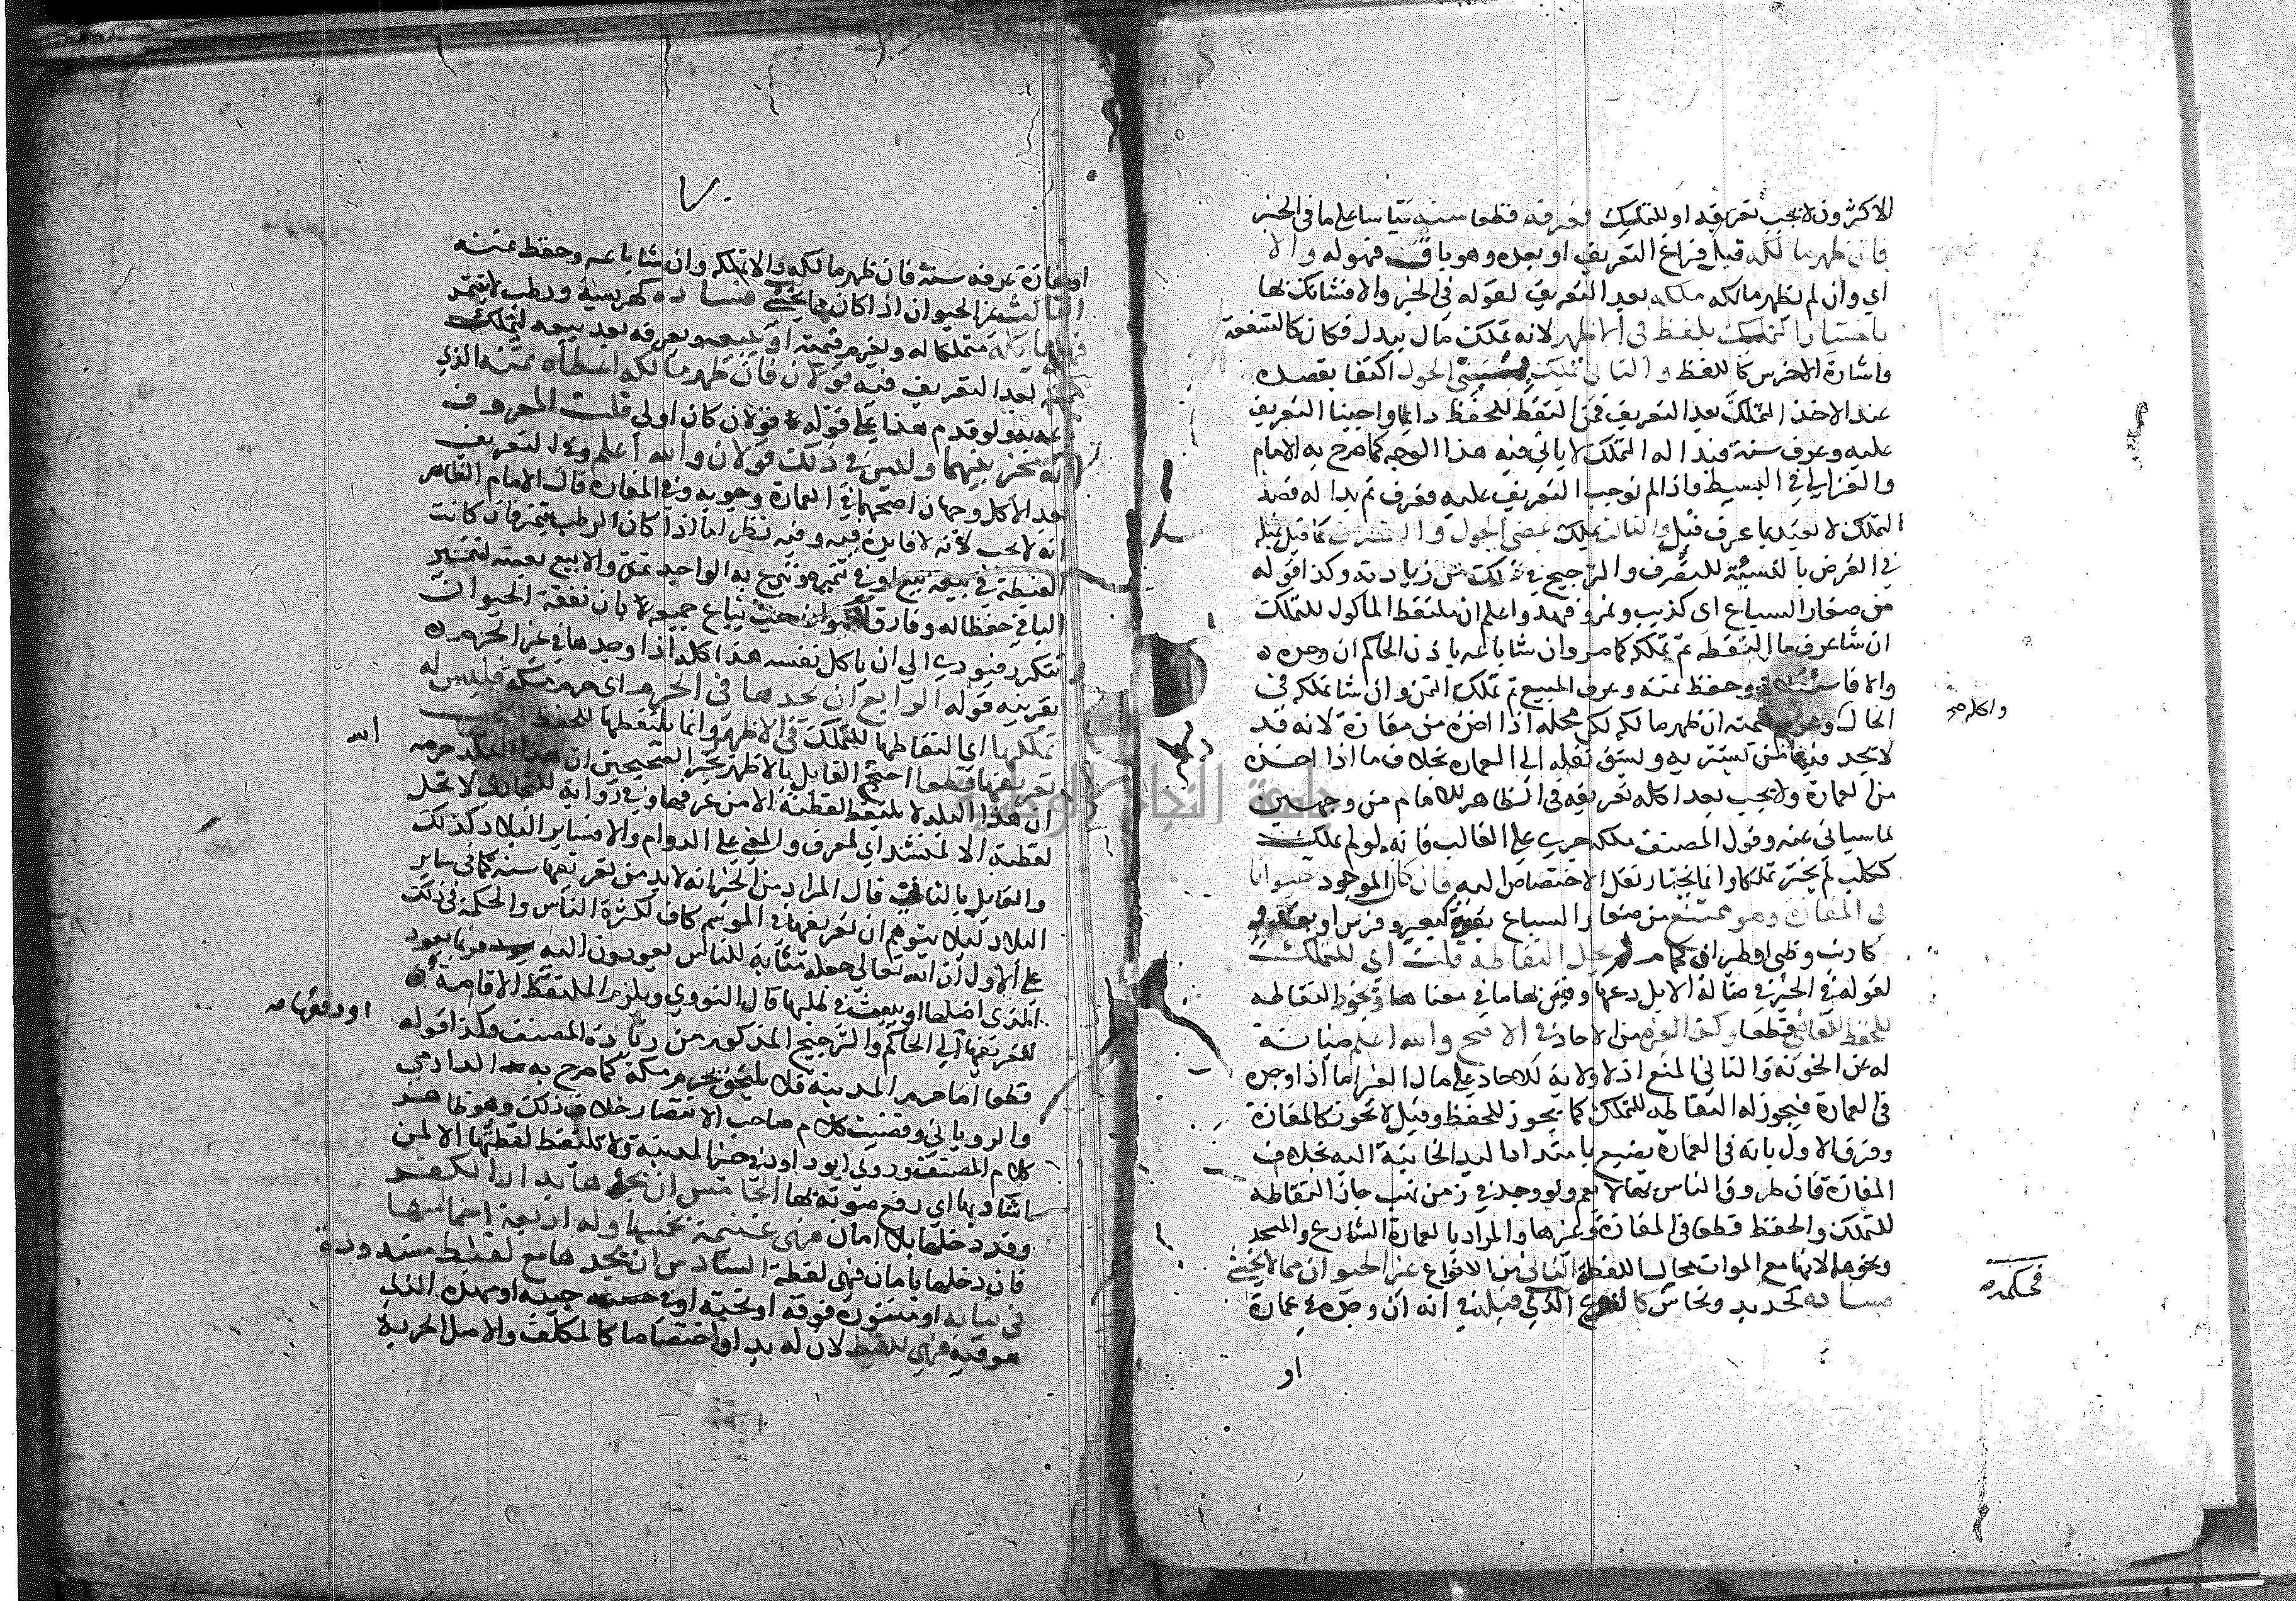 الاكثرون لا يجب تعريفه او للتمليك فعرفه قطعا سنة قياسا على ما في الخبر
فان ظهر مالكه قبل فراغ التعريف او بعده وهو باق فهوله والا
اي وان لم يظهر مالكه ملكه بعد التعريف لقوله في الخبر والا فشانك بها
باختيار التمليك بلفظ في الاظهر لانه تملك مال ببدل فكان كالشفعة
واشارة الاخرس كاللفظ والثاني تملك بمضي الحول اكتفا بقصده
عند الاخذ التملك بعد التعريف فمن التقط للحفظ دايما واجبنا التعريف
عليه وعرف سنة فبدا له التملك لا ياتي فيه هذا الوجه كما صرح به الامام
والغزالي في البسيط واذا لم نوجب التعريف عليه فعرف ثم بدا له قصد
التملك لا يعتد بما عرف قبل والثالث تملك بمضي الحول والتصرف كما قيل بمثله
في القرض بالنسبة للتصرف والترجيح في ذلك من زيادته وكذا قوله
من صغار السباع اي كذيب ونمر وفهد واعلم ان ملتقط الماكول للتملك
ان شا عرف ما التقطه ثم تملكه كما مر وان شا باعه باذن الحاكم ان وجده
والا فاستقلالا وحفظ ثمنه وعرف المبيع ثم تملك الثمن وان شا تملكه في
الحال وغرم قيمته ان ظهر مالكه لكن محله اذا اخذه من مفازة لانه قد
لا يجد فيها من يشتريه ويشق نقله الى العمارة بخلاف ما اذا اخذه
من العمارة ولا يجب بعد اكله تعريفه في الظاهر للامام من وجهين
لما سياتي عنه وقول المصنف ملكه جري على الغالب فانه لو لم يملك
ككلب لم يختر تملكا وانما يختار نقل الاختصاص اليه فان كان الموجود حيوانا
في المفازة وهو ممتنع من صغار السباع بقوة كبعير وفرس او بعدو
كارنب وظبي او طيران كحمام لم يحل التقاطه قلت اي للتملك
لقوله في الخبر في ضالة الابل دعها وقيس بها ما في معناها ويجوز التقاطه
للحفظ للقاضي قطعا وكذا لغيره من الاحاد في الاصح والله اعلم صيانة
له عن الخونة والثاني المنع اذ لا ولاية للاحاد على مال الغير اما اذا وجده
في العمارة فيجوز له التقاطه للتملك كما يجوز للحفظ وقيل لا يجوز كالمفازة
وفرق الاول بانه في العمارة يضيع بامتداد اليد الخاينة اليه بخلاف
المفازة فان طروق الناس بها لا يعم ولو وجد في زمن نهب جاز التقاطه
للتملك والحفظ قطعا في المفازة وغيرها والمراد بالعمارة الشارع والمسجد
ونحوهما لانها مع الموات محال اللقطة الثاني من الانواع غير الحيوان مما لا يخشى
فساده كحديد ونحاس كالنوع الذي قبله في انه ان وجده في عمارة
او
واكله صح
فحكمه صح
٧٠
او مفازة عرفه سنة فان ظهر مالكه والا تملكه وان شا باعه وحفظ ثمنه
الثالث غير الحيوان اذا كان مما يخشى فساده كهريسة ورطب لا يتتمر
فاما ياكله متملكا له ويغرم قيمته او يبيعه ويعرفه بعد بيعه ليتملك
ثمنه بعد التعريف فيه قولان فان ظهر مالكه اعطاه ثمنه الذي
باعه به ولو قدم هذا على قوله قولان كان اولى قلت المعروف
انه تخير بينهما وليس في ذلك قولان والله اعلم وفي التعريف
بعد الاكل وجهان اصحهما في العمارة وجوبه وفي المفازة قال الامام الظاهر
انه لا يجب لانه لا فايدة فيه وفيه نظر اما اذا كان الرطب يتتمر فان كانت
الغبطة في بيعه بيع او في تتميره وتبرع به الواجد تمر والا بيع بعضه لتتمير
الباقي حفظا له وفارق الحيوان حيث يباع جميعه بان نفقة الحيوان
تتكرر فيودي الى ان ياكل نفسه هذا كله اذا وجدها في غير الحرم
بقرينة قوله الرابع ان يجدها في الحرم اي حرم مكة فليس له
تملكها اي التقاطها للتملك في الاظهر وانما يلتقطها للحفظ ويجب
تعريفها قطعا احتج القايل بالاظهر بخبر الصحيحين ان هذا البلد حرمه
الله ان هذا البلد لا يلتقط لقطته الا من عرفها وفي رواية للبخاري لا تحل
لقطته الا لمنشد اي لمعرف والمعنى على الدوام والا فساير البلاد كذلك
والقايل بالثاني قال المراد من الخبر انه لا بد من تعريفها سنة كما في ساير
البلاد ليلا يتوهم ان تعريفها في الموسم كاف لكثرة الناس والحكمة في ذلك
على الاول ان الله تعالى جعله مثابة للناس يعودون اليه فربما يعود
الذي اضلها او يبعث في طلبها قال النووي ويلزم الملتقط الاقامة
للتعريفها الى الحاكم والترجيح المذكور من زيادة المصنف وكذا قوله
قطعا اما حرم المدينة فلا يلحق بحرم مكة كما صرح به الدارمي
والروياني وقضيت كلام صاحب الانتصار خلاف ذلك وهو ظاهر
كلام المصنف وروى ابو داود في خبر المدينة ولا تلتقط لقطتها الا لمن
اشاد بها اي رفع صوته بها الخامس ان يجدها بدار الكفر
وقد دخلها بلا امان فهي غنيمة نخمسها وله اربعة اخماسها
فان دخلها بامان فهي لقطة السادس ان يجدها مع لقيط مشدودة
في ثيابه او منثورة فوقه او تحته او في جيبه او مهده الذي
هو فيه فهي للقيط لان له يدا واختصاصا كالمكلف والاصل الحرية
الله
او دفعها صح